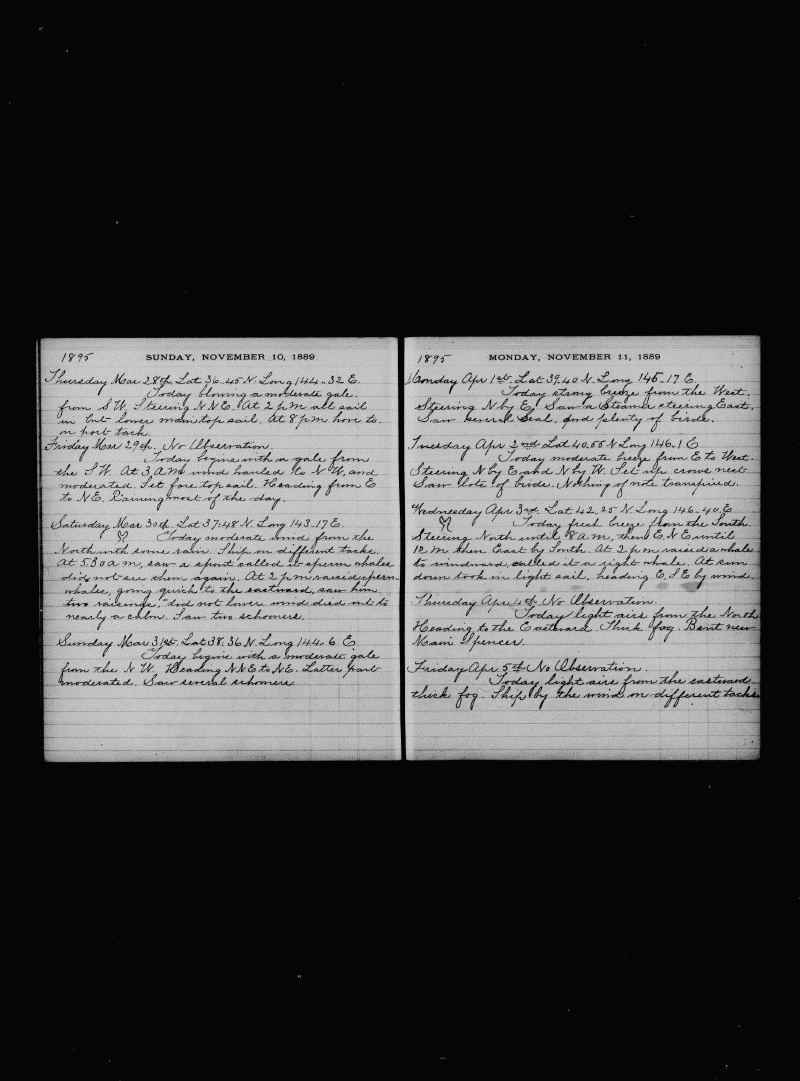 1895 SUNDAY, NOVEMBER 10, 1889
Thursday Mar 28th Lat 36.45 N. Long 144.32 E.
Today blowing a moderate gale
from S W. Steering N N E. At 2 p m all sail
in but lower main top sail. At 8 p m hove to.
on port tack.
Friday Mar 29th. No Observation.
Today begins with a gale from
the S W. At 3 A M wind hauled to N W, and
moderated. Set fore top sail. Heading from E
to N E. Raining most of the day.
Saturday Mar 30th. Lat 37:48 N. Long 143.17 E.
Today moderate wind from the
North with some rain. Ship on different tacks.
At 5.30 a m, saw a spout called it sperm whales
did not see them again. At 2 p m raised sperm
whales, going quick to the eastward, saw him
two raisings, did not lower wind died out to
nearly a calm. Saw two schooners.
Sunday Mar 31st. Lat 38.36 N. Long 144.6 E
Today begins with a moderate gale
from the N W. Heading N N E to N E. Latter part
moderated. Saw several schooners.
1895 MONDAY, NOVEMBER 11, 1889
Monday Apr 1st. Lat 39.40 N. Long 145.17 E.
Today strong breeze from the West.
Steering N by E. Saw a steamer steering East.
Saw several seal, and plenty of birds.
Tuesday Apr 2nd Lat 40.55 N Long 146.1 E
Today moderate breeze from E to West
Steering N by E and N by W. Set up crows nest
Saw lots of birds. Nothing of note transpired.
Wednesday Apr 3rd. Lat 42.25 N Long 146-40 E
Today fresh breeze from the South.
Steering North until 8 A M, then E. N E until
12 M then East by South. At 2 p m raised a whale
to windward called it a right whale. At sun
down took in light sail, heading E. S E by wind.
Thursday Apr 4th No Observation.
Today light airs from the North
Heading to the Eastward. Thick fog. Bent new
Main Spencer.
Friday Apr 5th No Observation.
Today light airs from the eastward
thick fog. Ship by the wind on different tacks